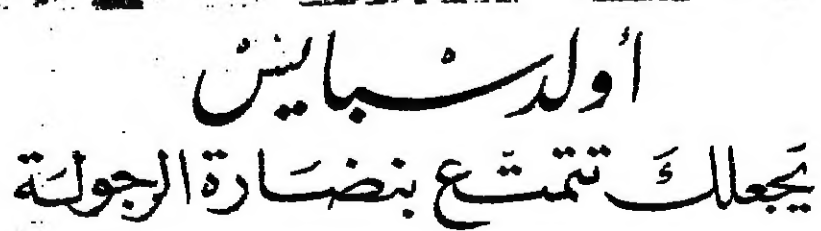 أولد سبايسْ
يَجعلكَ تتمتّع بنضَارة الرجولَة